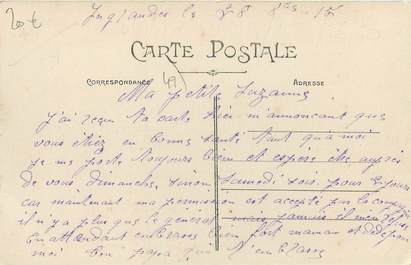 20€
Ingrandes le 28 8bre 15
CARTE POSTALE
CORRESPONDANCE
49
ADRESSE
Ma petite Suzanne
J'ai reçu ta carte hier m'annonçant que
vous étiez en bonne santé tant qu'à moi
je me porte toujours bien et espère être auprès
de vous dimanche, sinon samedi soir pour
car maintenant ma permission est accepté par la
il n'y a plus que le général mais
En attendant embrasse bien fort maman et dédé pour
moi ton papa qui t'embrasse